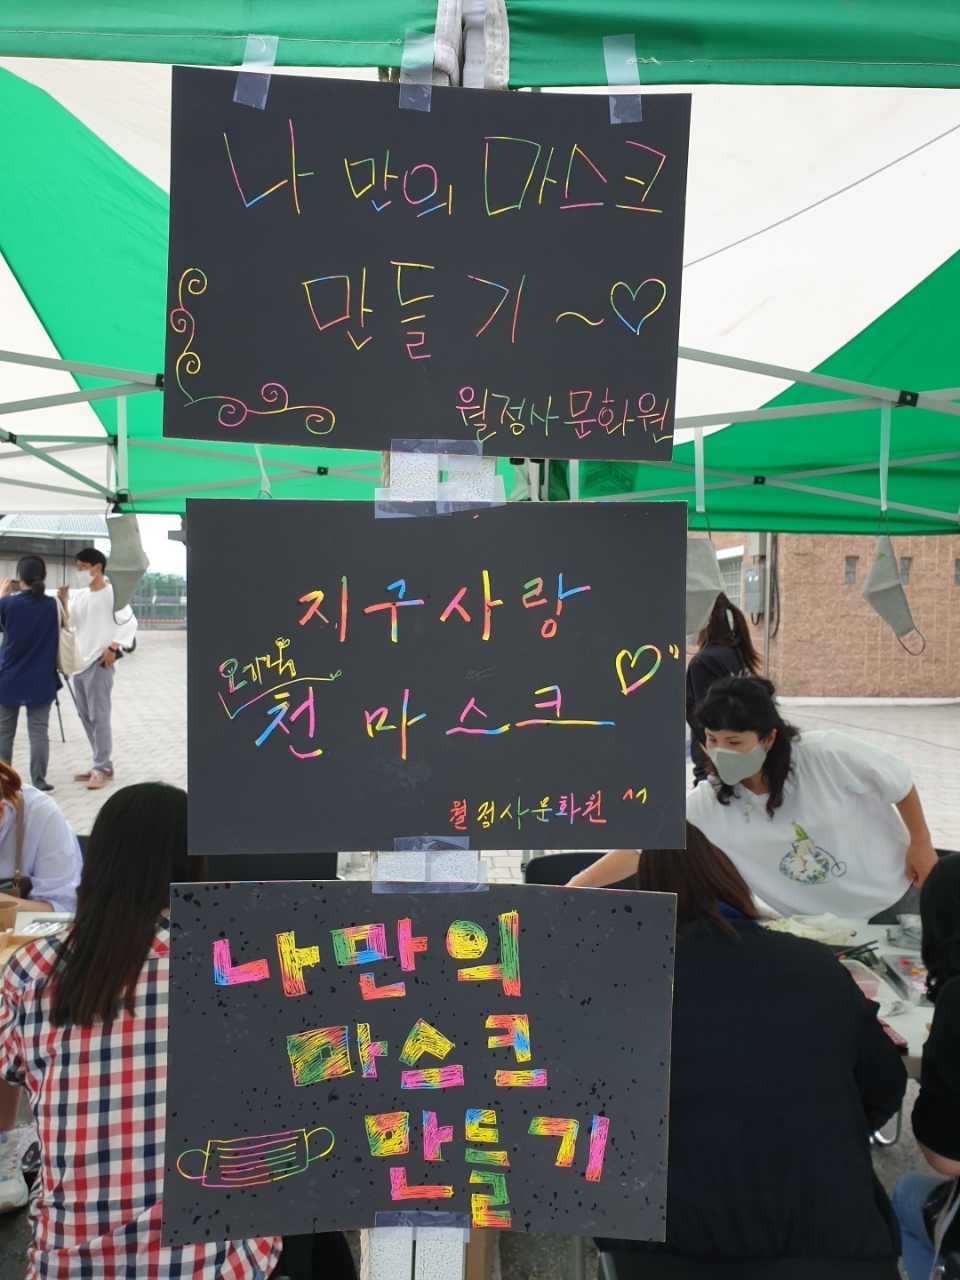 나만의 마스크
만들기~♡
월정사문화원
지구사랑
오가닉
천 마스크
월정사문화원
나만의
마스크
만들기